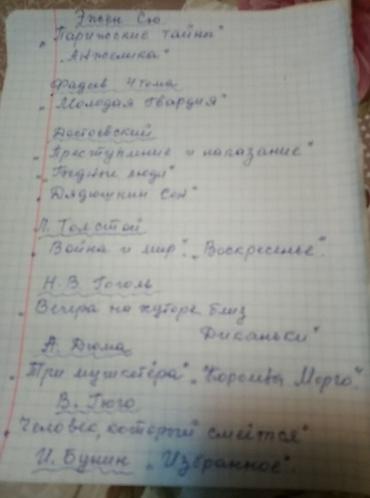 Эжен Сю.
"Парижские тайны"
"Анжелика"
Фадеев 4 тома
"Молодая гвардия"
Достоевский
"Преступление и наказание"
"Бедные люди"
"Дядюшкин сон"
Л. Толстой
"Война и мир". "Воскресенье".
Н. В. Гоголь
"Вечера на хуторе близ
Диканьки"
А. Дюма
"Три мушкетёра". "Королева Марго".
В. Гюго
"Человек, который смеётся"
И. Бунин "Избранное".